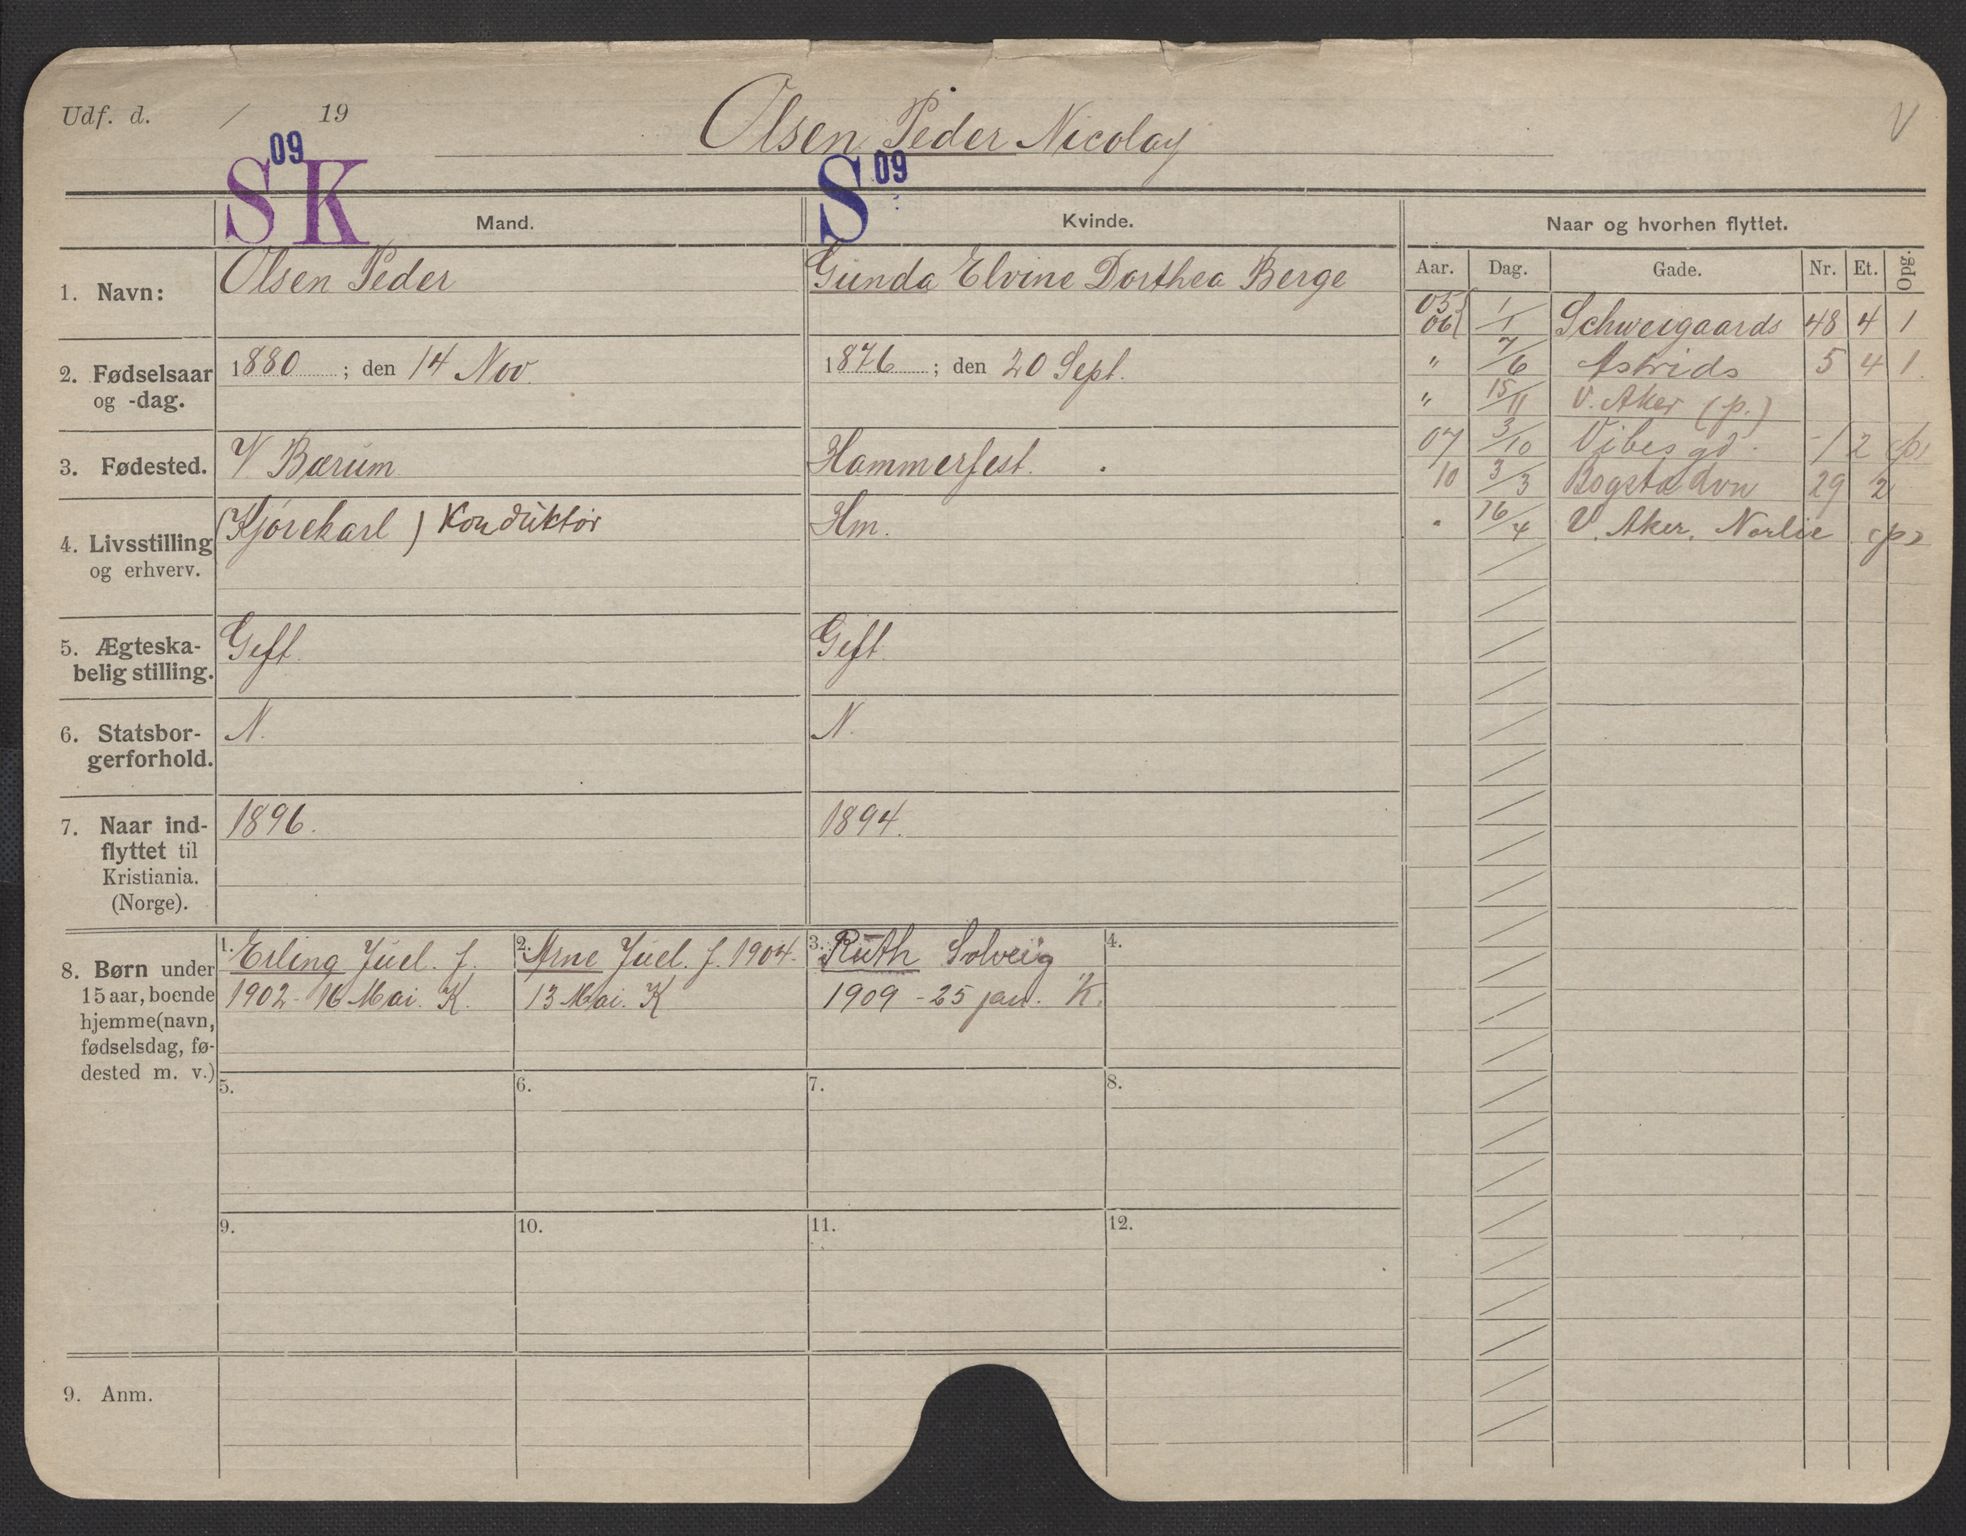 Udf. d. / 19
Olsen Peder Nicolay
V
S 09 K
S 09
Mand.
Kvinde.
Naar og hvorhen flyttet.
Aar. Dag. Gade. Nr. Et. Opg.
1. Navn:
Olsen Peder
Gunda Elvine Dorthea Berge
2. Fødselsaar
og -dag.
1880 ; den 14 Nov.
1876 ; den 20 Sept.
3. Fødested.
V. Bærum
Hammerfest.
4. Livsstilling
og erhverv.
(Kjørekarl) Konduktør
Hm.
5. Ægteska-
belig stilling.
Gift.
Gift.
6. Statsbor-
gerforhold.
N.
N.
7. Naar ind-
flyttet til
Kristiania.
(Norge).
1896.
1894.
05
06 1/1 Schweigaards 48 4 1
" 7/6 Astrids 5 4 1.
" 15/11 V. Aker (p.)
07 3/10 Vibes gd. - 1 2 (p)
10 3/3 Bogstadvn 29 2
" 16/4 V. Aker. Norlie (p)
8. Børn under
15 aar, boende
hjemme (navn,
fødselsdag, fø-
dested m. v.)
1. Erling Juel. f.
1902 - 16 Mai. K.
2. Arne Juel. f. 1904.
13 Mai. K
3. Ruth Solveig
1909 - 25 jan. K.
4.
5. 6. 7. 8.
9. 10. 11. 12.
9. Anm.